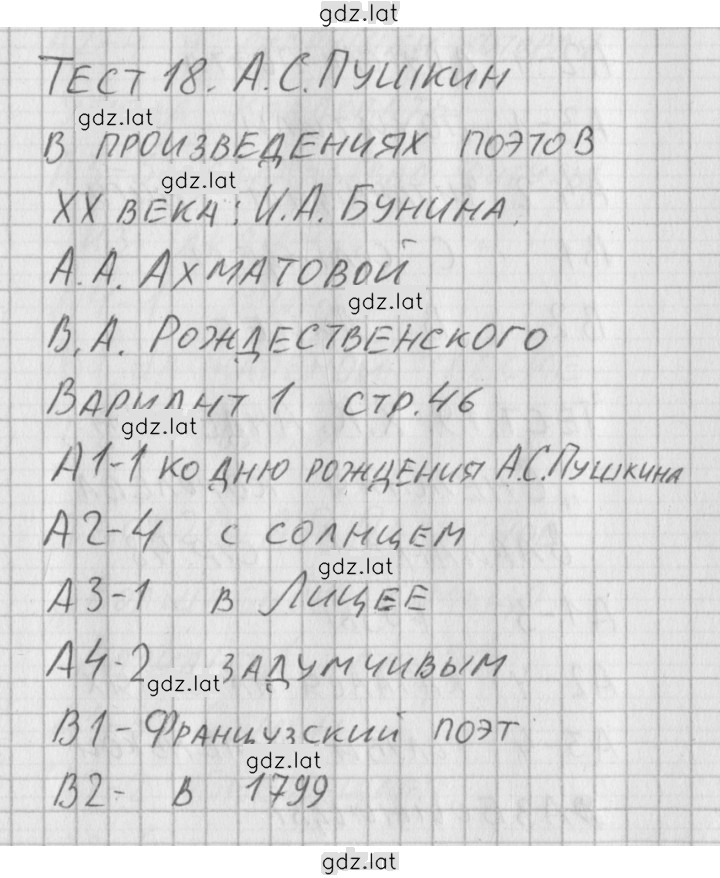 gdz.lat
Тест 18. А.С. Пушкин
gdz.lat
в произведениях поэтов
gdz.lat
XX века: И.А. Бунина,
А.А. Ахматовой
gdz.lat
В.А. Рождественского
Вариант 1 стр. 46
gdz.lat
А1-1 ко дню рождения А.С. Пушкина
А2-4 с солнцем
gdz.lat
А3-1 в Лицее
А4-2 задумчивым
gdz.lat
В1- Французский поэт
gdz.lat
В2- в 1799
gdz.lat